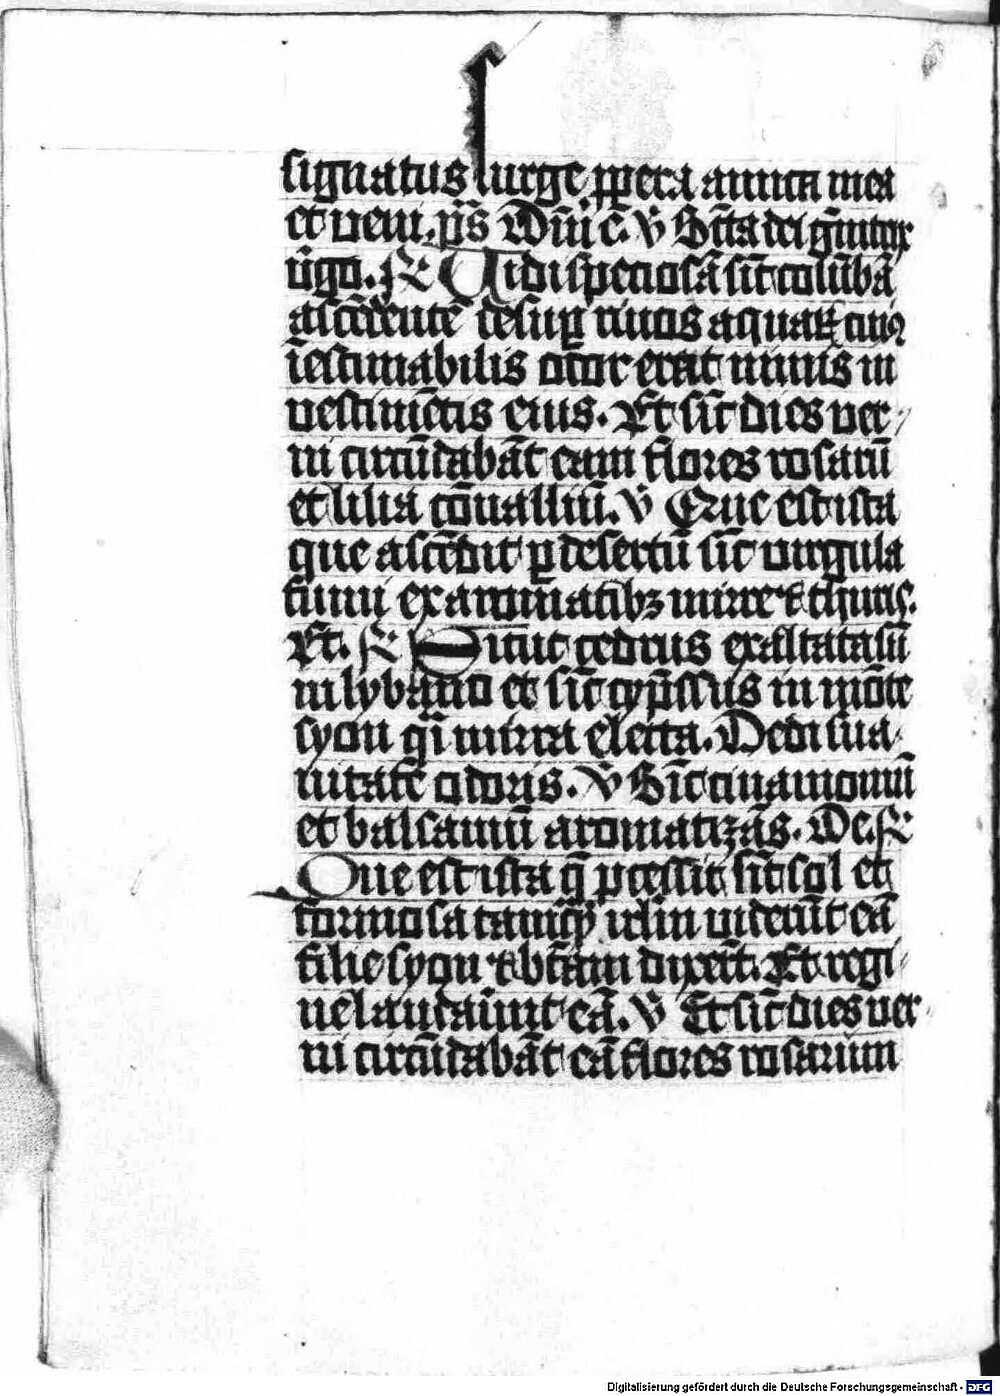 signatus surge ꝓpera amica mea
et veni. p̅s Dn̅i c̅. ℣ Sc̅ta dei ge̅nitrix
v̅go. ℟ Vidi speciosa̅ sic̅ colu̅ba̅
asce̅dente̅ desup̲ riuos aquaꝝ cuiꝰ
i̅estimabilis odor erat nimis in
vestime̅tis eius. Et sic̅ dies ver
ni circu̅daba̅t eam flores rosaru̅
et lilia co̅ualliu̅. ℣ Que est ista
que asce̅dit ꝑ desertu̅ sic̅ virgula
fumi ex aromatibꝫ mirre ⁊ thuris.
Et. ℟ Sicut cedrus exaltata su̅
in lybano et sic̅ cyp̅ssus in mo̅te
syon q̅i mirra electa. Dedi sua
uitate̅ odoris. ℣ Sic̅ cinamomu̅
et balsamu̅ aromatiza̅s. De. ℟
Que est ista q̅ ꝓcessit sic̅ sol et
formosa tamq̅ irl̅m videru̅t ea̅
filie syon ⁊ bt̅am dixer̅t. Et regi
ne laudauer̅t ea̅. ℣ Et sic̅ dies ver
ni circu̅daba̅t ea̅ flores rosarum
Digitalisierung gefördert durch die Deutsche Forschungsgemeinschaft - DFG